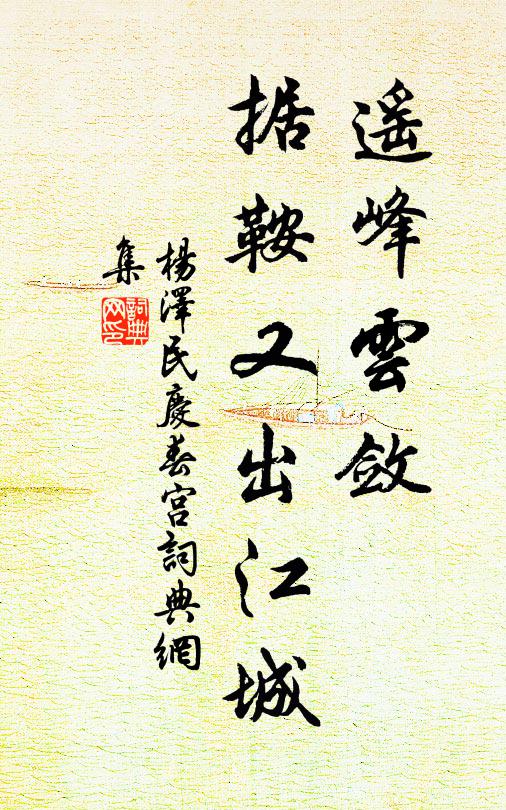 遥峰雲斂
据鞍又出江城
楊澤民慶春宮詞典網
集
詞典
网